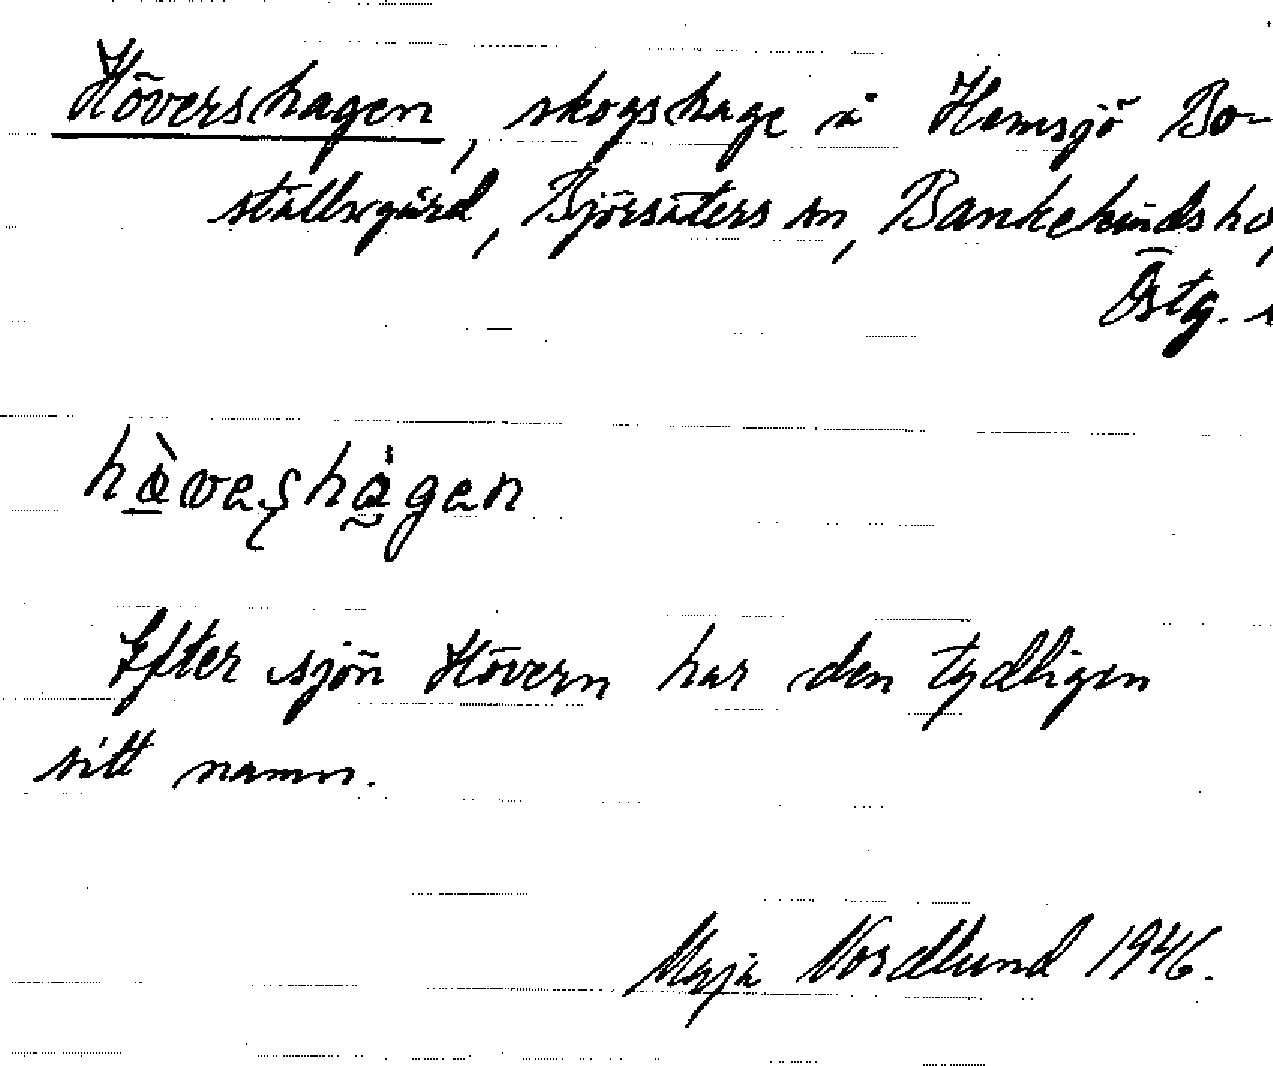 Hövershagen, skogshage å Hemsjö Bo-
ställsgård, Björsäters sn, Bankekinds hd,
Östg.
hävashagan
Efter sjön Hövern har den tydligen
sitt namn.
Maja Nordlund 1946.